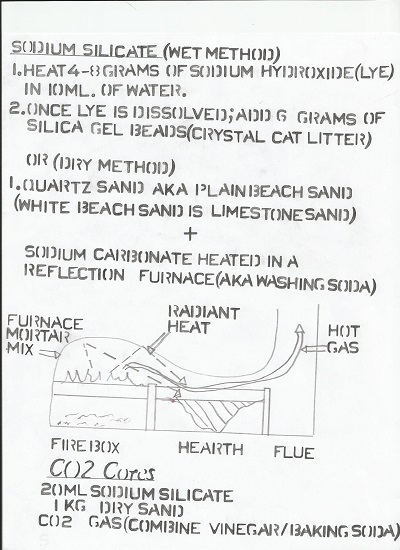 SODIUM SILICATE (WET METHOD)
1. HEAT 4-8 GRAMS OF SODIUM HYDROXIDE (LYE)
IN 10ML. OF WATER.
2. ONCE LYE IS DISSOLVED; ADD 6 GRAMS OF
SILICA GEL BEADS (CRYSTAL CAT LITTER)
OR (DRY METHOD)
1. QUARTZ SAND AKA PLAIN BEACH SAND
(WHITE BEACH SAND IS LIMESTONE SAND)
+
SODIUM CARBONATE HEATED IN A
REFLECTION FURNACE (AKA WASHING SODA)
FURNACE
MORTAR
MIX
RADIANT
HEAT
HOT
GAS
FIREBOX HEARTH FLUE
CO2 Cores
20ML SODIUM SILICATE
1 KG DRY SAND
CO2 GAS (COMBINE VINEGAR/BAKING SODA)